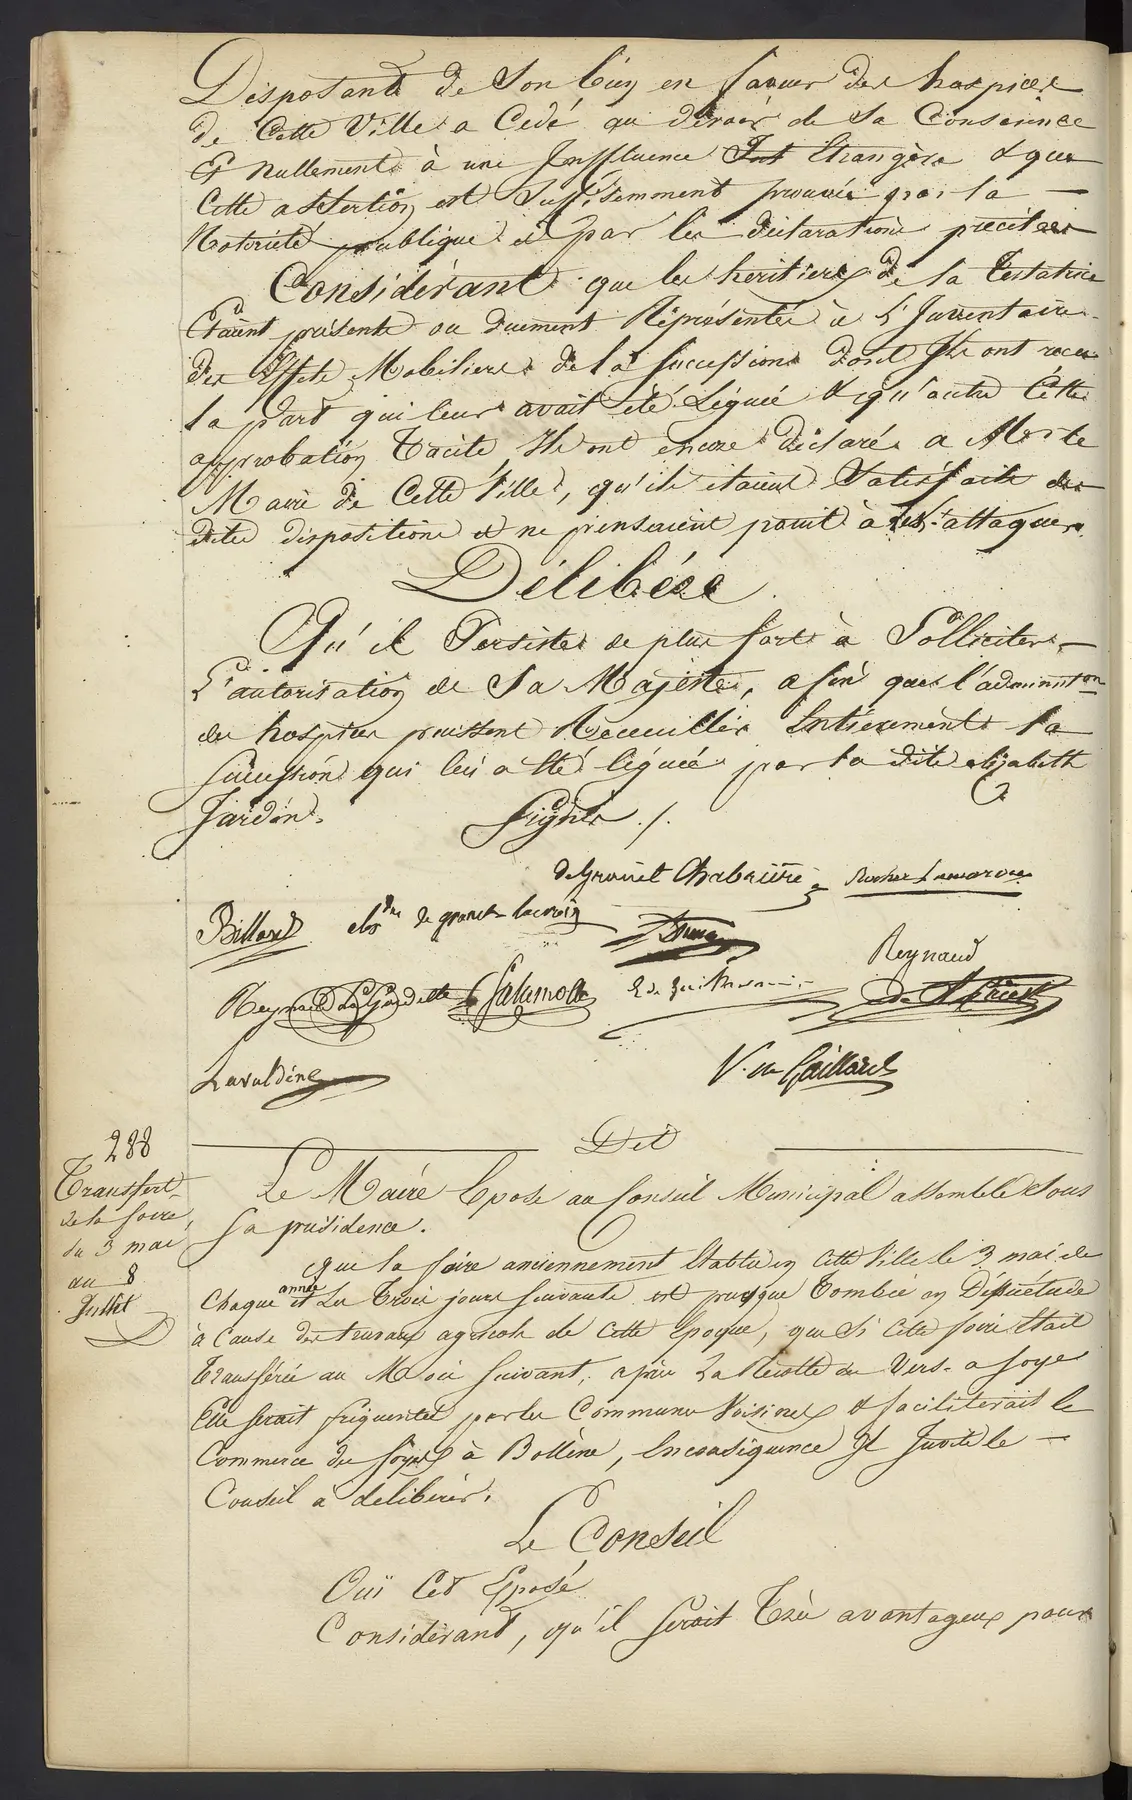 Disposant de Son bien en faveur des hospices
de Cette Ville a Cédé au devoir de Sa Consçience
Et Nullement à une Jnffluence Etrangère & que
Cette assertion est Suffisemment prouvée par la —
Notorieté publique et par les déclarations précitées
Considérant que les héritiers de la Testatrice
Etaient présents ou duement Réprésentés à l'Jnventaire
des Effets Mobiliers de la Succession dont Jls ont reçu
la part qui leur avait été Léguée & qu'outre Cette
approbation Tacite Ils ont encore déclaré a Mr le
Maire de Cette Ville, qu'ils étaient Satisfaits des
dites dispositions et ne pensaient point à les attaquer.
Délibére
Qu'il Persiste de plus fort à Solliciter —
L'autorisation de Sa Majesté, afin que l'administon
des hospices puissent Recueillir Entierement la
Succession qui leur a été léguée par la dite elizabeth
Jardin. Signés ./.
de Granet Chabrière Rocher Lamarou
Billard de granet lacroix
Reynaud
Reynaud La Gardette Salamon
Lavaldène V. du Gaillard
288
Transfert
de la foire
du 3 mai
au 8
Juillet
Dit
Le Maire Expose au Conseil Municipal assemblé Sous
Sa présidence.
que la foire anciennement Etablie en Cette Ville le 3 mai de
Chaque année et Les Trois jours Suivants est presque Tombée en Désuétude
à Cause des travaux agricoles de Cette Epoque, que Si Cette foire Etait
Transférée au Mois Suivant, après La Récolte du Vers-a Soye
Elle Serait fréquentée par les Communes Voisines & faciliterait le
Commerce des Soyes à Bollène, En conséquence Jl Jnvite le —
Conseil a délibérer.
Le Conseil
Ouï Cet Exposé
Considérant, qu'il Serait Très avantageux pour